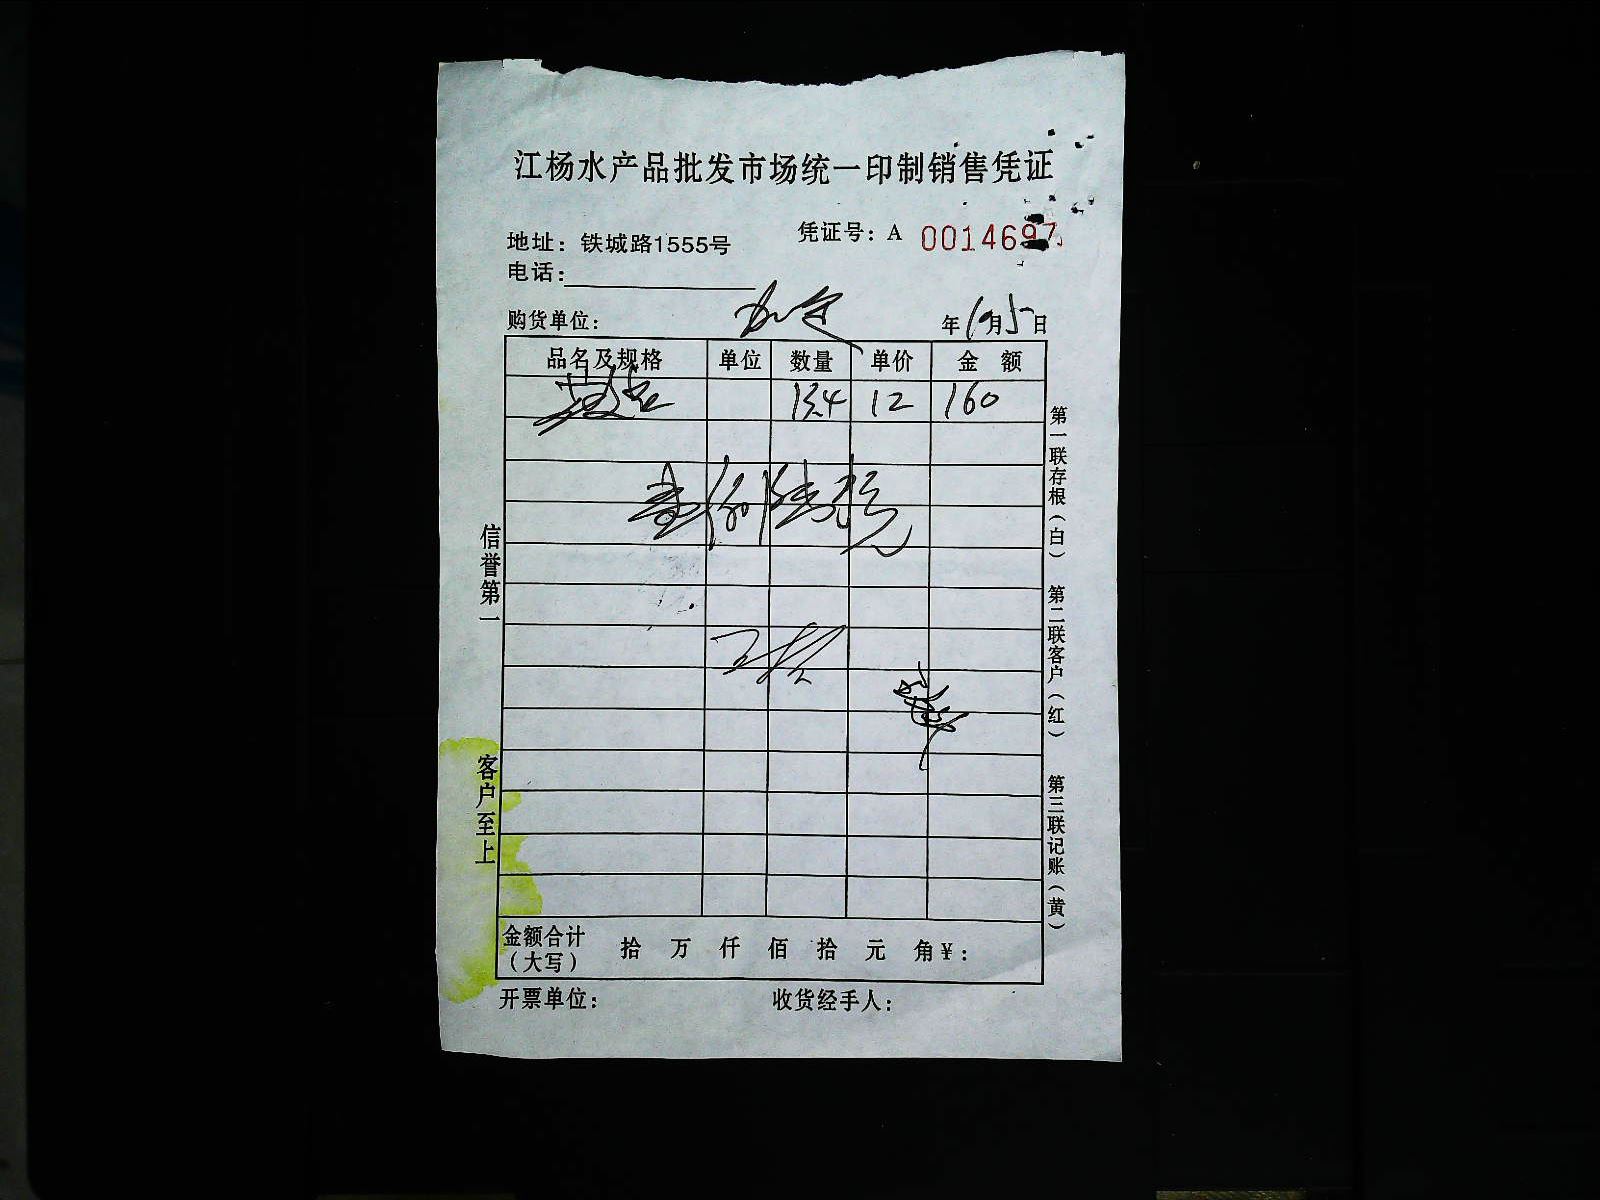 江杨水产品批发市场统一印制销售凭证
凭证号：A 0014697
地址：铁城路1555号
电话：
购货单位： 年10月5日
品名及规格 单位 数量 单价 金额
13.4 12 160
壹佰陆拾元
金额合计（大写） 拾 万 仟 佰 拾 元 角 ¥：
开票单位： 收货经手人：
信誉第一 客户至上
第一联存根（白） 第二联客户（红） 第三联记账（黄）